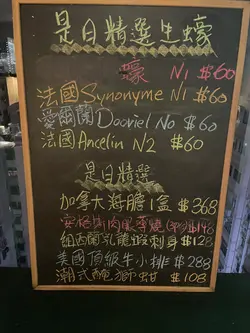 是日精選生蠔
蠔 N1 $60
法國 Synonyme N1 $60
愛爾蘭 Dooriel No $60
法國 Ancelin N2 $60
是日精選
加拿大海膽1盒 $368
安格斯肉眼 $148
紐西蘭 刺身 $128
美國頂級牛小排 $288
潮式醃獅蚶 $108